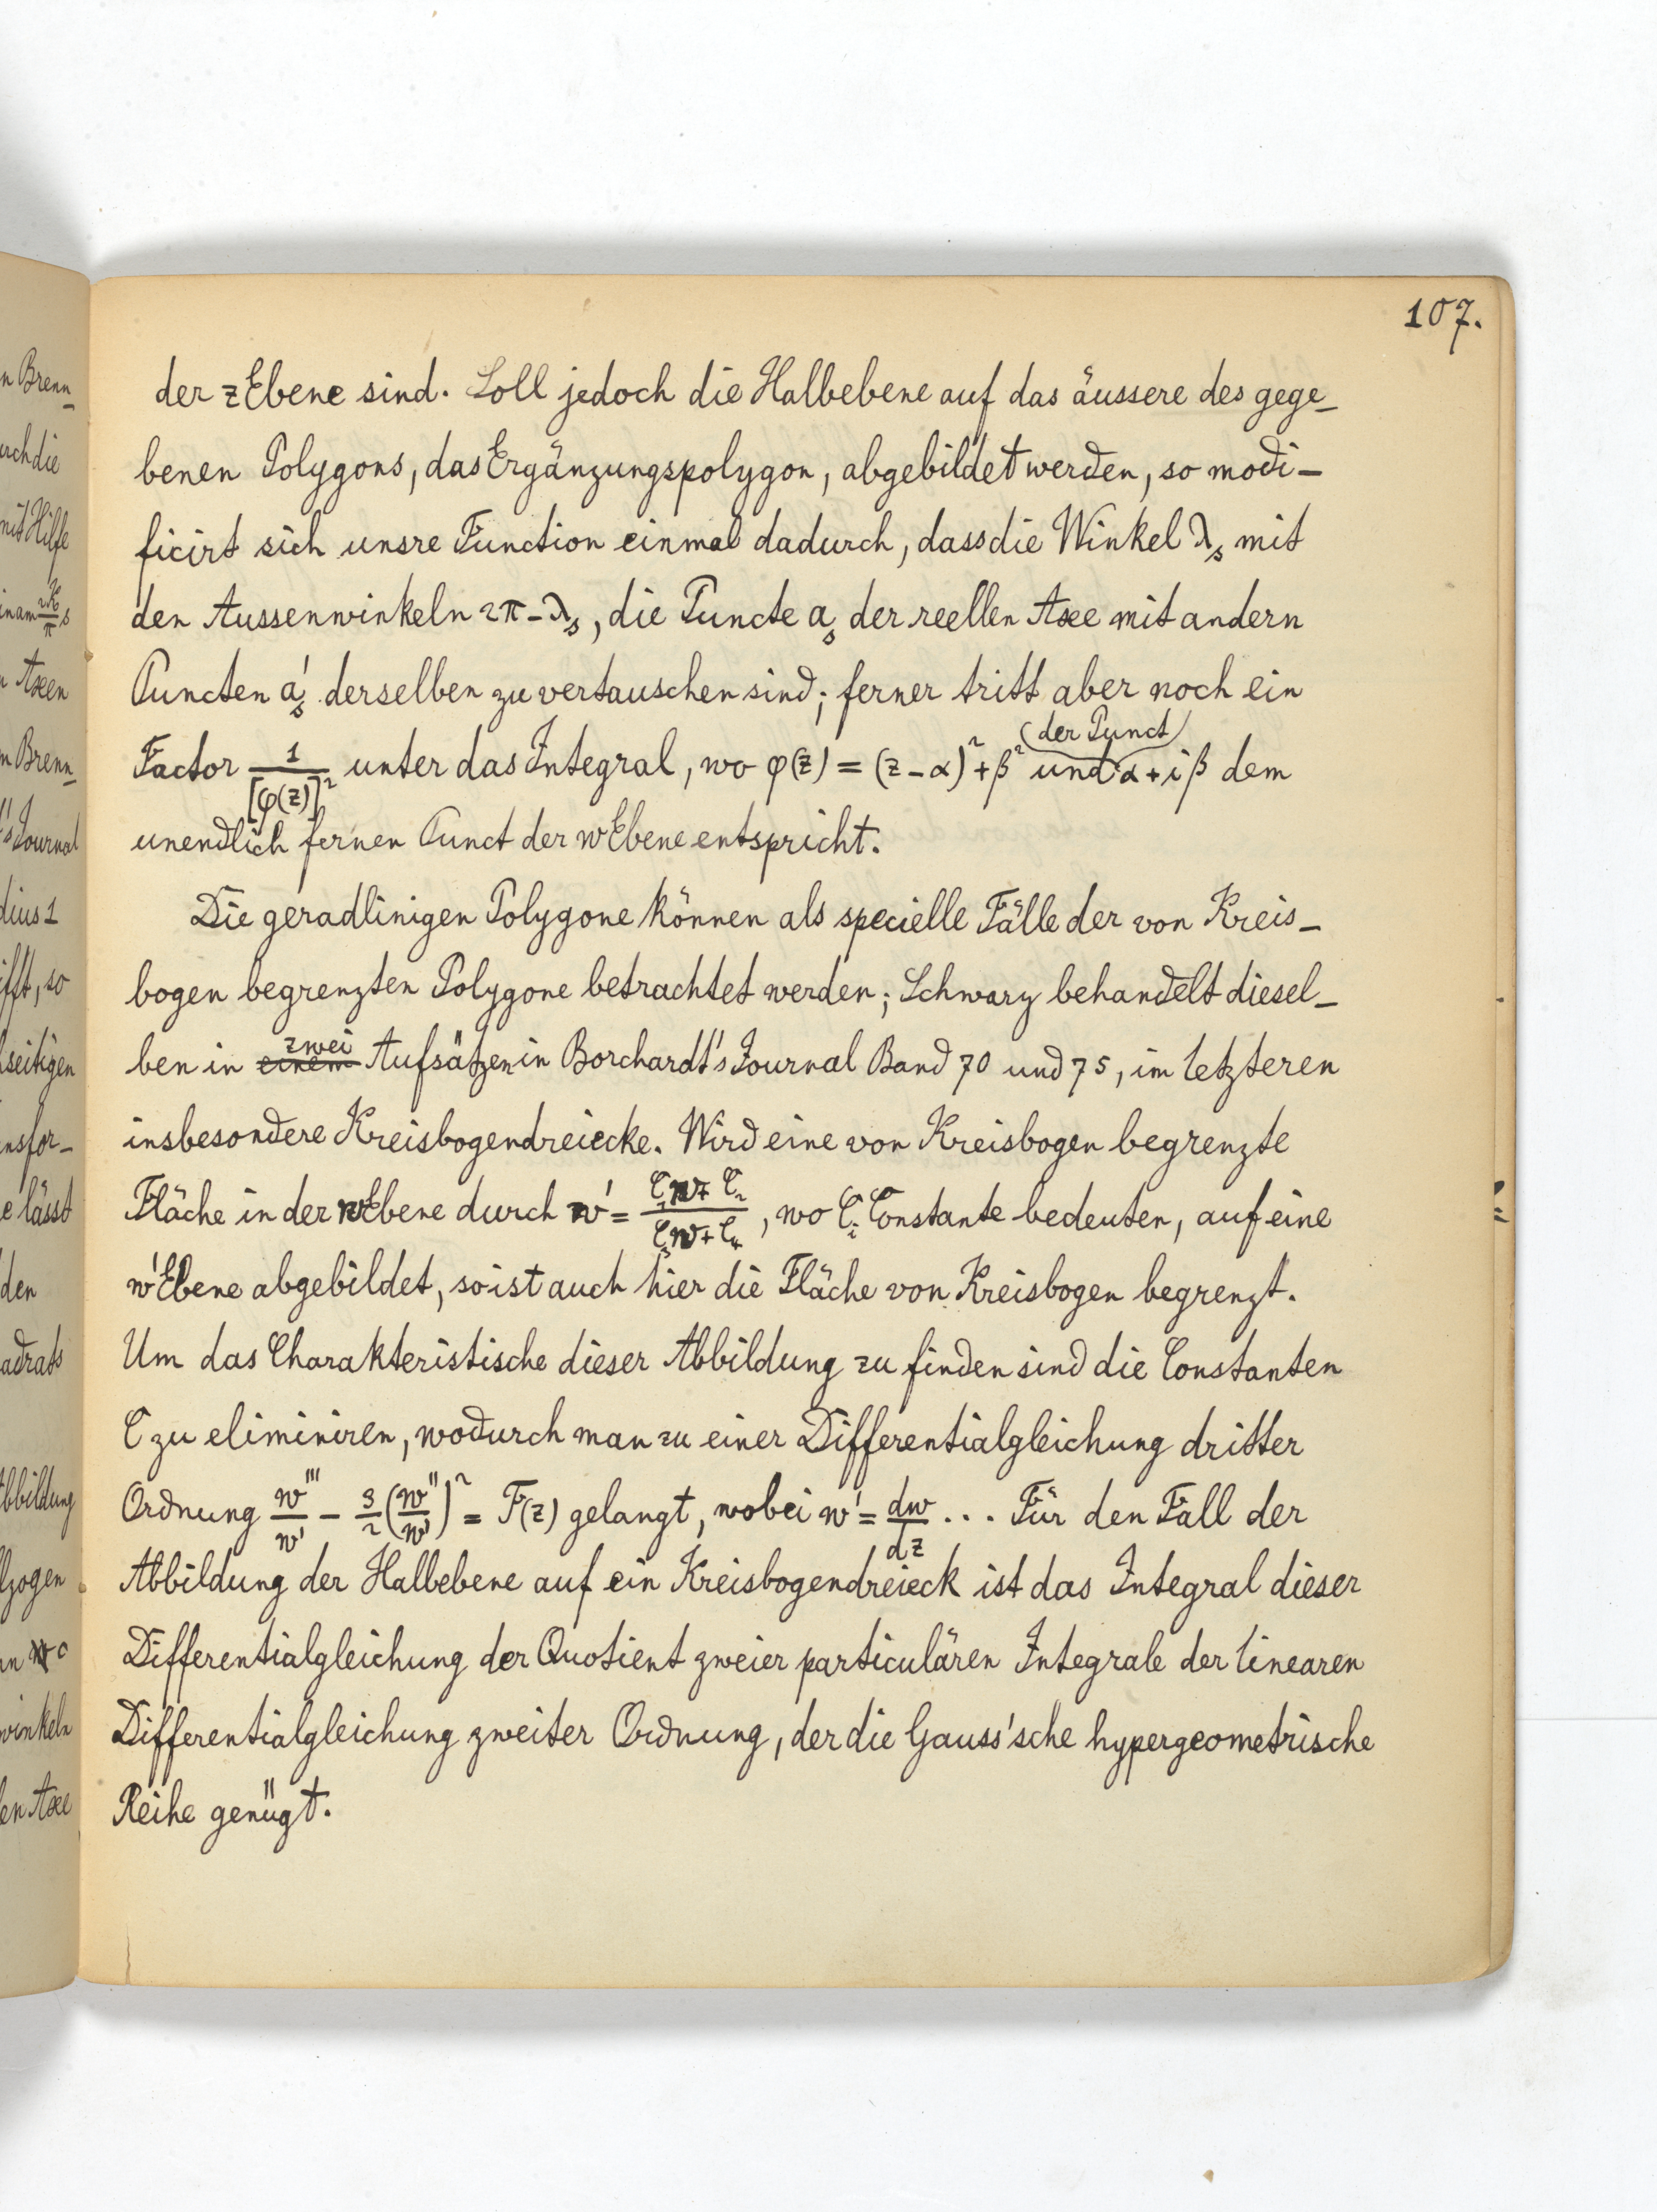 107.
der z Ebene sind. Soll jedoch die Halbebene auf das äussere des gege-
benen Polygons, das Ergänzungspolygon, abgebildet werden, so modi-
ficirt sich unsre Function einmal dadurch, dass die Winkel λ_s mit
den Aussenwinkeln 2π - λ_s, die Puncte a_s der reellen Axe mit andern
Puncten a'_s derselben zu vertauschen sind; ferner tritt aber noch ein
Factor 1/[φ(z)]² unter das Integral, wo φ(z) = (z - α)² + β² und der Punct α + iβ dem
unendlich fernen Punct der w Ebene entspricht.
Die geradlinigen Polygone können als specielle Fälle der von Kreis-
bogen begrenzten Polygone betrachtet werden; Schwarz behandelt diesel-
ben in einem zwei Aufsätzen in Borchardt's Journal Band 70 und 75, im letzteren
insbesondere Kreisbogendreiecke. Wird eine von Kreisbogen begrenzte
Fläche in der w Ebene durch w' = (C₁w + C₂)/(C₃w + C₄), wo C_i Constante bedeuten, auf eine
w' Ebene abgebildet, so ist auch hier die Fläche von Kreisbogen begrenzt.
Um das Charakteristische dieser Abbildung zu finden sind die Constanten
C zu eliminiren, wodurch man zu einer Differentialgleichung dritter
Ordnung w'''/w' - 3/2 (w''/w')² = F(z) gelangt, wobei w' = dw/dz ... Für den Fall der
Abbildung der Halbebene auf ein Kreisbogendreieck ist das Integral dieser
Differentialgleichung der Quotient zweier particulären Integrale der linearen
Differentialgleichung zweiter Ordnung, der die Gauss'sche hypergeometrische
Reihe genügt.